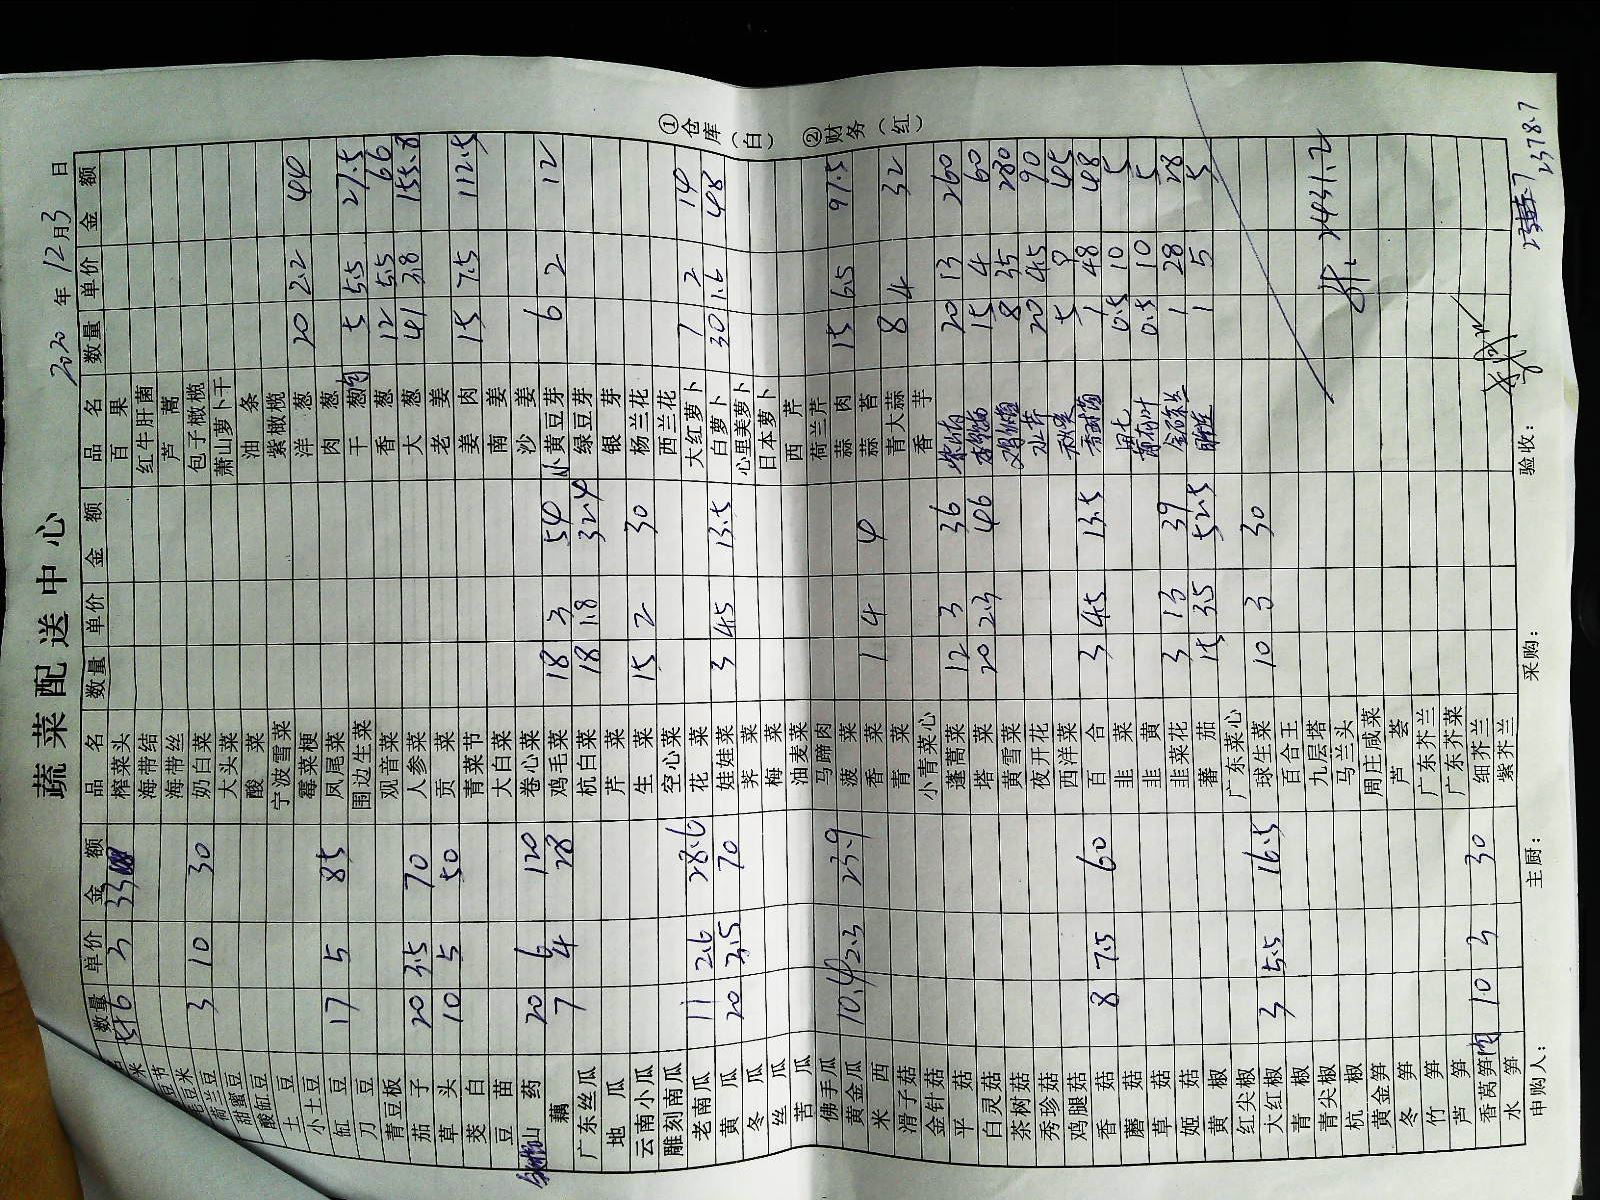 蔬菜配送中心
2020 年 12 月 3 日
数量 单价 金额 品名 数量 单价 金额 品名 数量 单价 金额
6 3 33 榨菜头 百果
海带结 红牛肝菌
海带丝 芦蒿
毛豆米 3 10 30 奶白菜 包子橄榄
荷兰豆 大头菜 萧山萝卜干
甜蜜豆 酸菜 油条
酸豇豆 宁波雪菜 紫橄榄
土豆 霉菜梗 洋葱 20 2.2 44
小土豆 凤尾菜 肉葱
豇豆 17 5 85 围边生菜 干葱 5 5.5 27.5
刀豆 观音菜 香葱 12 5.5 66
青豆板 人参菜 大葱 41 3.8 155.8
茄子 20 3.5 70 贡菜 老姜
草头 10 5 50 青菜节 姜肉 15 7.5 112.5
茭白 大白菜 南姜
豆苗 卷心菜 沙姜
山药 20 6 120 鸡毛菜 18 3 54 黄豆芽 6 2 12
藕 7 4 28 杭白菜 18 1.8 32.4 绿豆芽
广东丝瓜 芹菜 银芽
地瓜 生菜 15 2 30 杨兰花
云南小瓜 空心菜 西兰花
雕刻南瓜 花菜 大红萝卜 7 2 14
老南瓜 11 2.6 28.6 娃娃菜 3 4.5 13.5 白萝卜 30 1.6 48
黄瓜 20 3.5 70 荠菜 心里美萝卜
冬瓜 梅菜 日本萝卜
丝瓜 油麦菜 西芹
苦瓜 马蹄肉 荷兰芹
佛手瓜 菠菜 蒜肉 15 6.5 97.5
黄金瓜 10.4 2.3 23.9 香菜 1 4 4 蒜苔
米西 青菜 青大蒜 8 4 32
滑子菇 小青菜心 香芋
金针菇 蓬蒿菜 12 3 36 20 13 260
平菇 塔菜 20 2.3 46 15 4 60
白灵菇 黄雪菜 8 35 280
茶树菇 夜开花 水芹 20 4.5 90
秀珍菇 西洋菜 5 9 45
鸡腿菇 百合 3 4.5 13.5 1 48 48
香菇 8 7.5 60 韭菜 0.5 10 5
蘑菇 韭黄 0.5 10 5
草菇 韭菜花 3 13 39 1 28 28
姬菇 蕃茄 15 3.5 52.5 1 5 5
黄椒 广东菜心
红尖椒 球生菜 10 3 30
大红椒 3 5.5 16.5 百合王
青椒 九层塔
青尖椒 马兰头 2431.2
杭椒 周庄咸菜
黄金笋 芦荟
冬笋 广东芥兰
竹笋 广东芥菜
芦笋 细芥兰
香莴笋肉 10 3 30 紫芥兰
水笋
申购人： 主厨： 采购： 验收：
2378.7
①仓库（白） ②财务（红）